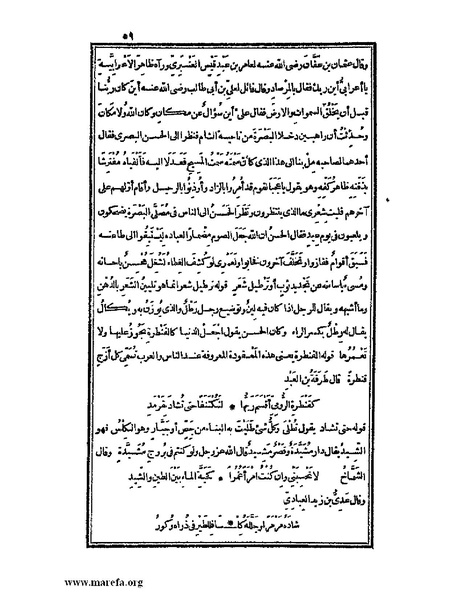 ٥٩
وقال عثمان بن عفان رضى الله عنه لعامر بن عبد قيس العنبرى ورآه ظاهر الاعرابية
يا أعرابى أين ربك فقال بالمرصاد وقال قائل لعلى بن أبى طالب رضى الله عنه أين كان ربنا
قبل أن يخلق السموات والارض فقال على أين سؤال عن مكان وكان الله ولا مكان
وحدثت أن راهبين دخلا البصرة من ناحية الشام فنظرا الى الحسن البصرى فقال
أحدهما لصاحبه مل بنا الى هذا الذى كأن سمته سمت المسيح فعدلا اليه فألفياه مفترشا
بذقنه ظاهر كفه وهو يقول يا عجبا لقوم قد أمروا بالزاد وأوذنوا بالرحيل وأقام أولهم على
آخرهم فليت شعرى ما الذى ينتظرون ونظر الحسن الى الناس فى مصلى البصرة يضحكون
ويلعبون فى يوم عيد فقال الحسن ان الله جعل الصوم مضمارا لعباده ليستبقوا الى طاعته
فسبق أقوام ففازوا وتخلف آخرون فخابوا ولعمرى لو كشف الغطاء لشغل محسن باحسانه
ومسىء باساءته عن تجديد ثوب أو ترطيل شعر قوله ترطيل شعر انما هو تليين الشعر بالدهن
وما أشبهه ويقال للرجل اذا كان فيه لين وتوضيع رجل رطل والذى يوزن به ويكال
يقال له رطل بكسر الراء وكان الحسن يقول اجعل الدنيا كالقنطرة تجوز عليها ولا
تعمرها قوله القنطرة يعنى هذه المعقودة المعروفة عند الناس والعرب تسمى كل أزج
قنطرة قال طرفة بن العبد
كقنطرة الرومى أقسم ربها * لتكتنفا حتى تشاد بقرمد
قوله حتى تشاد يقول تطلى وكل شئ طليت به البناء من جص أو جيار وهو الكلس فهو
الشيد يقال دار مشيدة وقصر مشيد قال الله عز وجل ولو كنتم فى بروج مشيدة وقال
الشماخ لا تحسبنى وان كنت امرأ غمرا * كحية الماء بين الطين والشيد
وقال عدى بن زيد العبادى
شاده مرمرا وجلله كلسا فللطير فى ذراه وكور
www.marefa.org